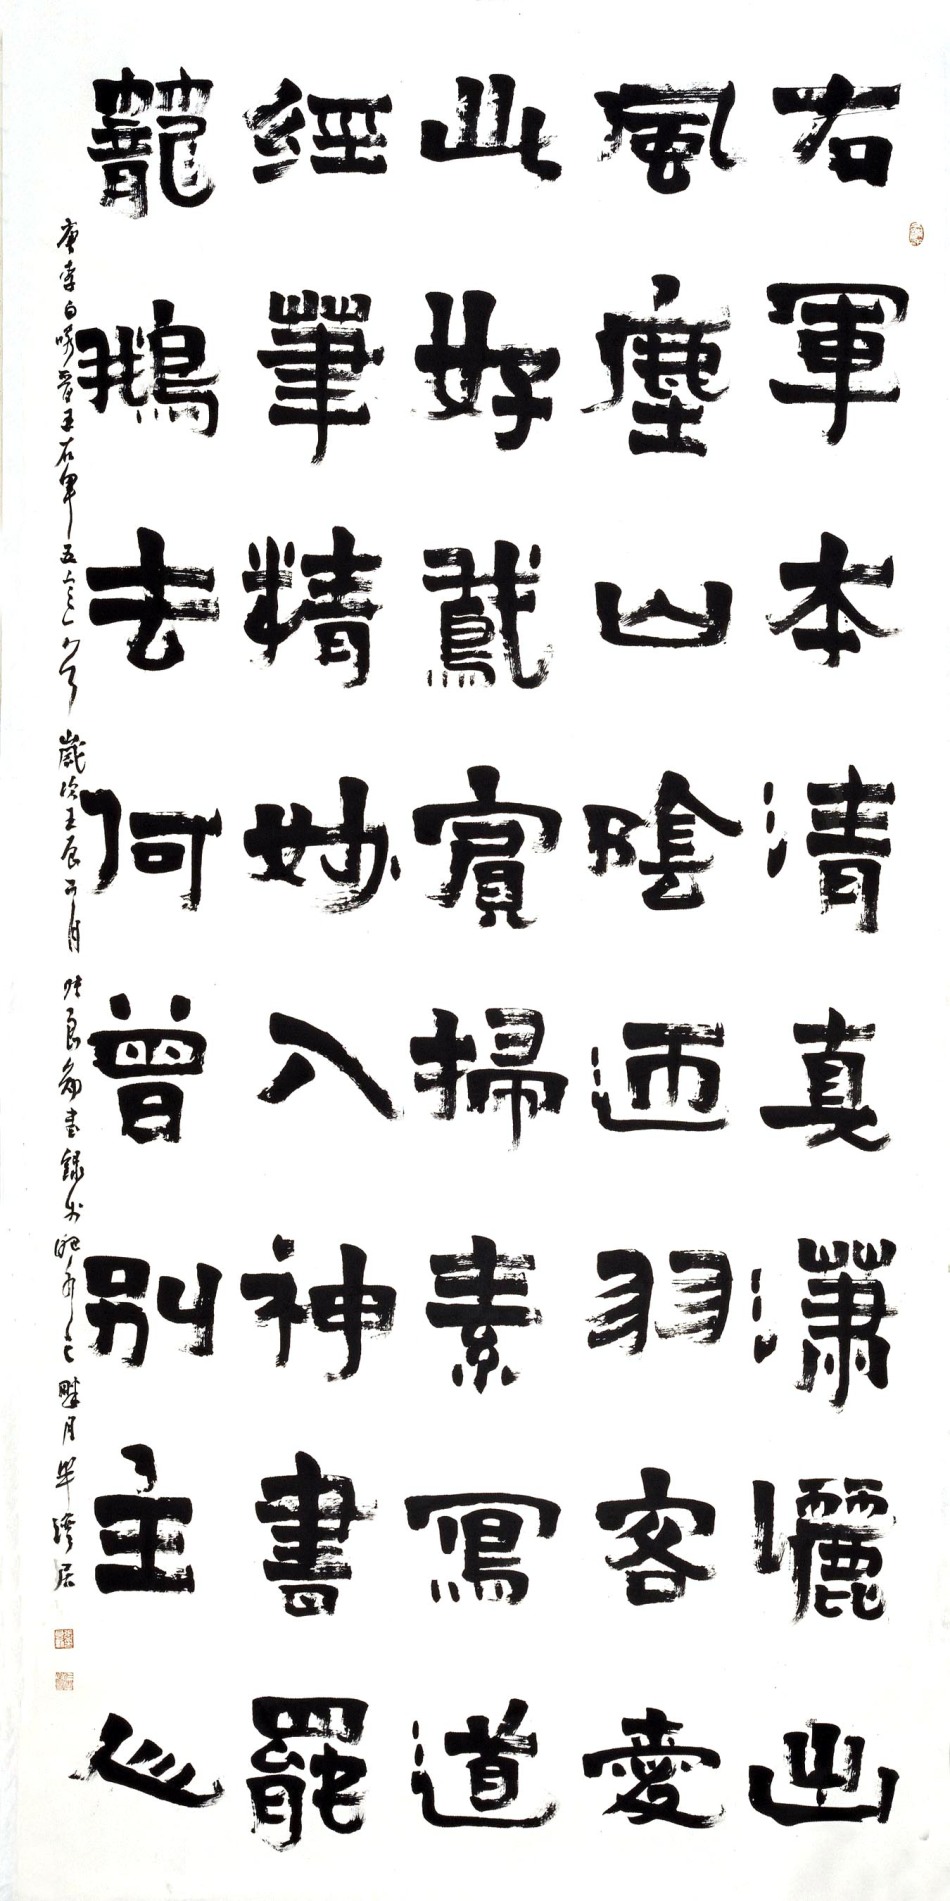 右軍本清真瀟灑出
風塵山陰過羽客愛
此好鵞賓掃素寫道
經筆精妙入神書罷
籠鵝去何曾別主人
唐李白咏晋王右軍五言 歲次壬辰 月 書錄於